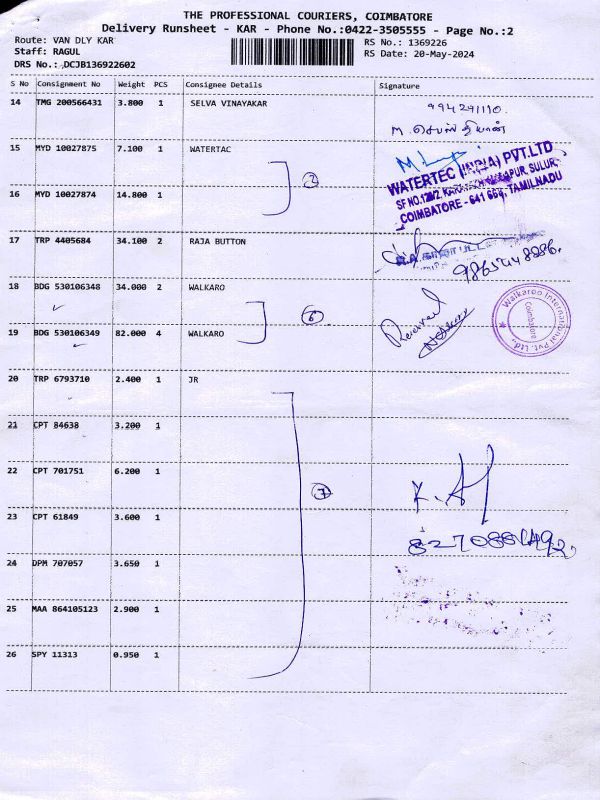 THE PROFESSIONAL COURIERS, COIMBATORE
Delivery Runsheet - KAR - Phone No.:0422-3505555 - Page No.:2
Route: VAN DLY KAR RS No.: 1369226
Staff: RAGUL RS Date: 20-May-2024
DRS No.: DCJB136922602
S No Consignment No Weight PCS Consignee Details Signature
14 TMG 200566431 3.800 1 SELVA VINAYAKAR
M. செபஸ்தியான்
15 MYD 10027875 7.100 1 WATERTAC
WATERTEC (INDIA) PVT.LTD
COIMBATORE - 641 TAMILNADU
16 MYD 10027874 14.800 1
17 TRP 4405684 34.100 2 RAJA BUTTON
18 BDG 530106348 34.000 2 WALKARO
6
Received
Walkaroo International Pvt. Ltd.,
Coimbatore
19 BDG 530106349 82.000 4 WALKARO
20 TRP 6793710 2.400 1 JR
21 CPT 84638 3.200 1
22 CPT 701751 6.200 1
7
23 CPT 61849 3.600 1
24 DPM 707057 3.650 1
25 MAA 864105123 2.900 1
26 SPY 11313 0.950 1